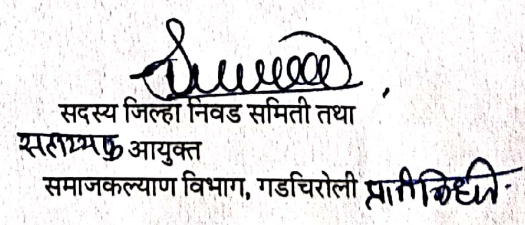 सदस्य जिल्हा निवड समिती तथा
सहाय्यक आयुक्त
समाजकल्याण विभाग, गडचिरोली प्रतिनिधी